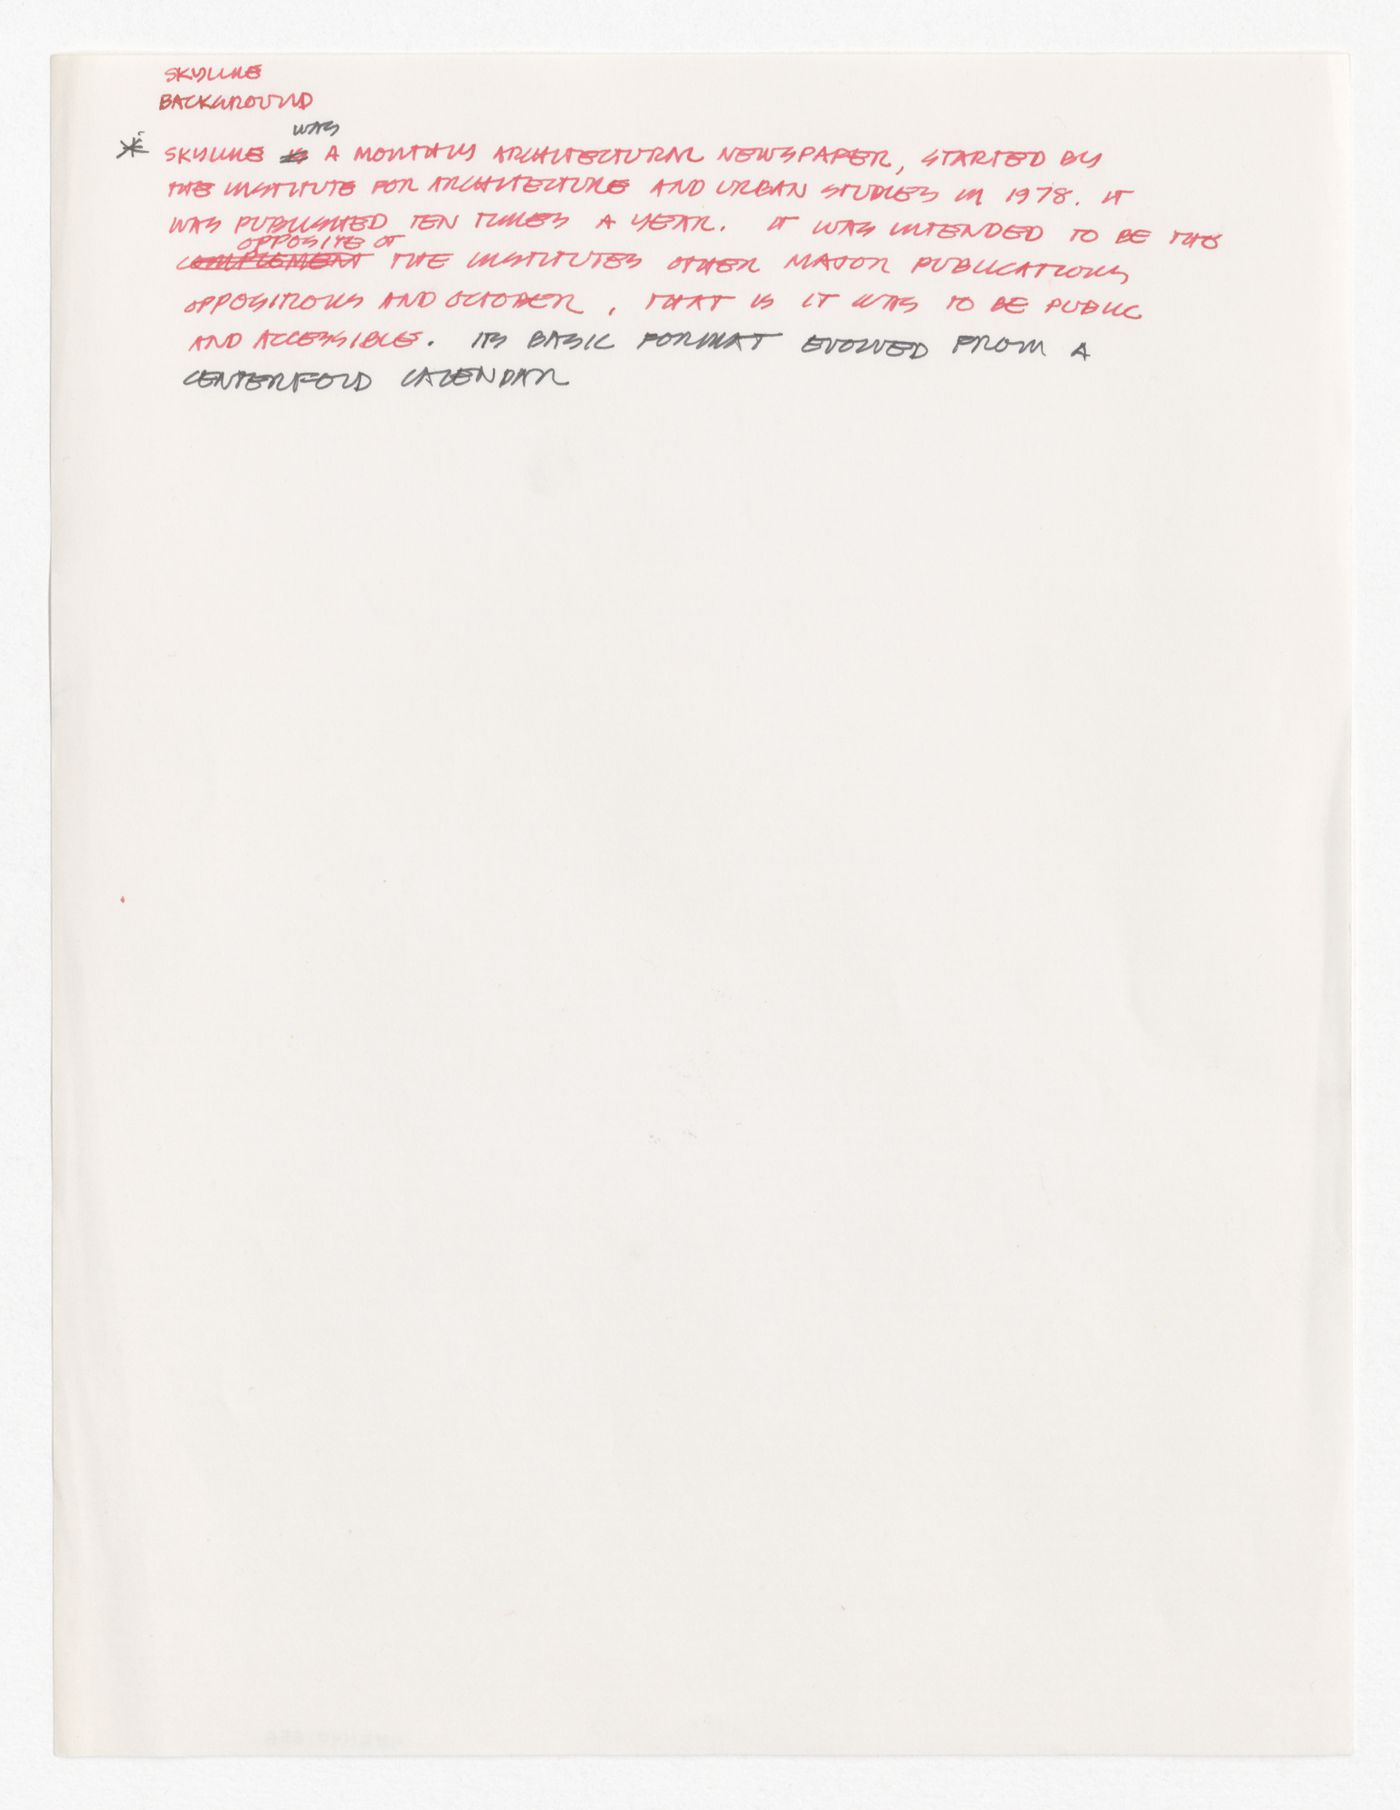 SKYLINE
BACKGROUND
WAS
* SKYLINE IS A MONTHLY ARCHITECTURAL NEWSPAPER, STARTED BY
THE INSTITUTE FOR ARCHITECTURE AND URBAN STUDIES IN 1978. IT
WAS PUBLISHED TEN TIMES A YEAR. IT WAS INTENDED TO BE THE
OPPOSITE OF
COMPLEMENT THE INSTITUTES OTHER MAJOR PUBLICATIONS
OPPOSITIONS AND OCTOBER, THAT IS IT WAS TO BE PUBLIC
AND ACCESSIBLE. ITS BASIC FORMAT EVOLVED FROM A
CENTERFOLD CALENDAR